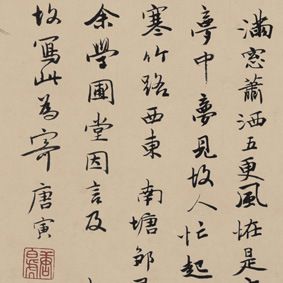 滿窓蕭洒五更風恠是
夢中夢見故人忙起
寒竹路西東 南塘鄒
余學圃堂因言及
故寫此為寄 唐寅